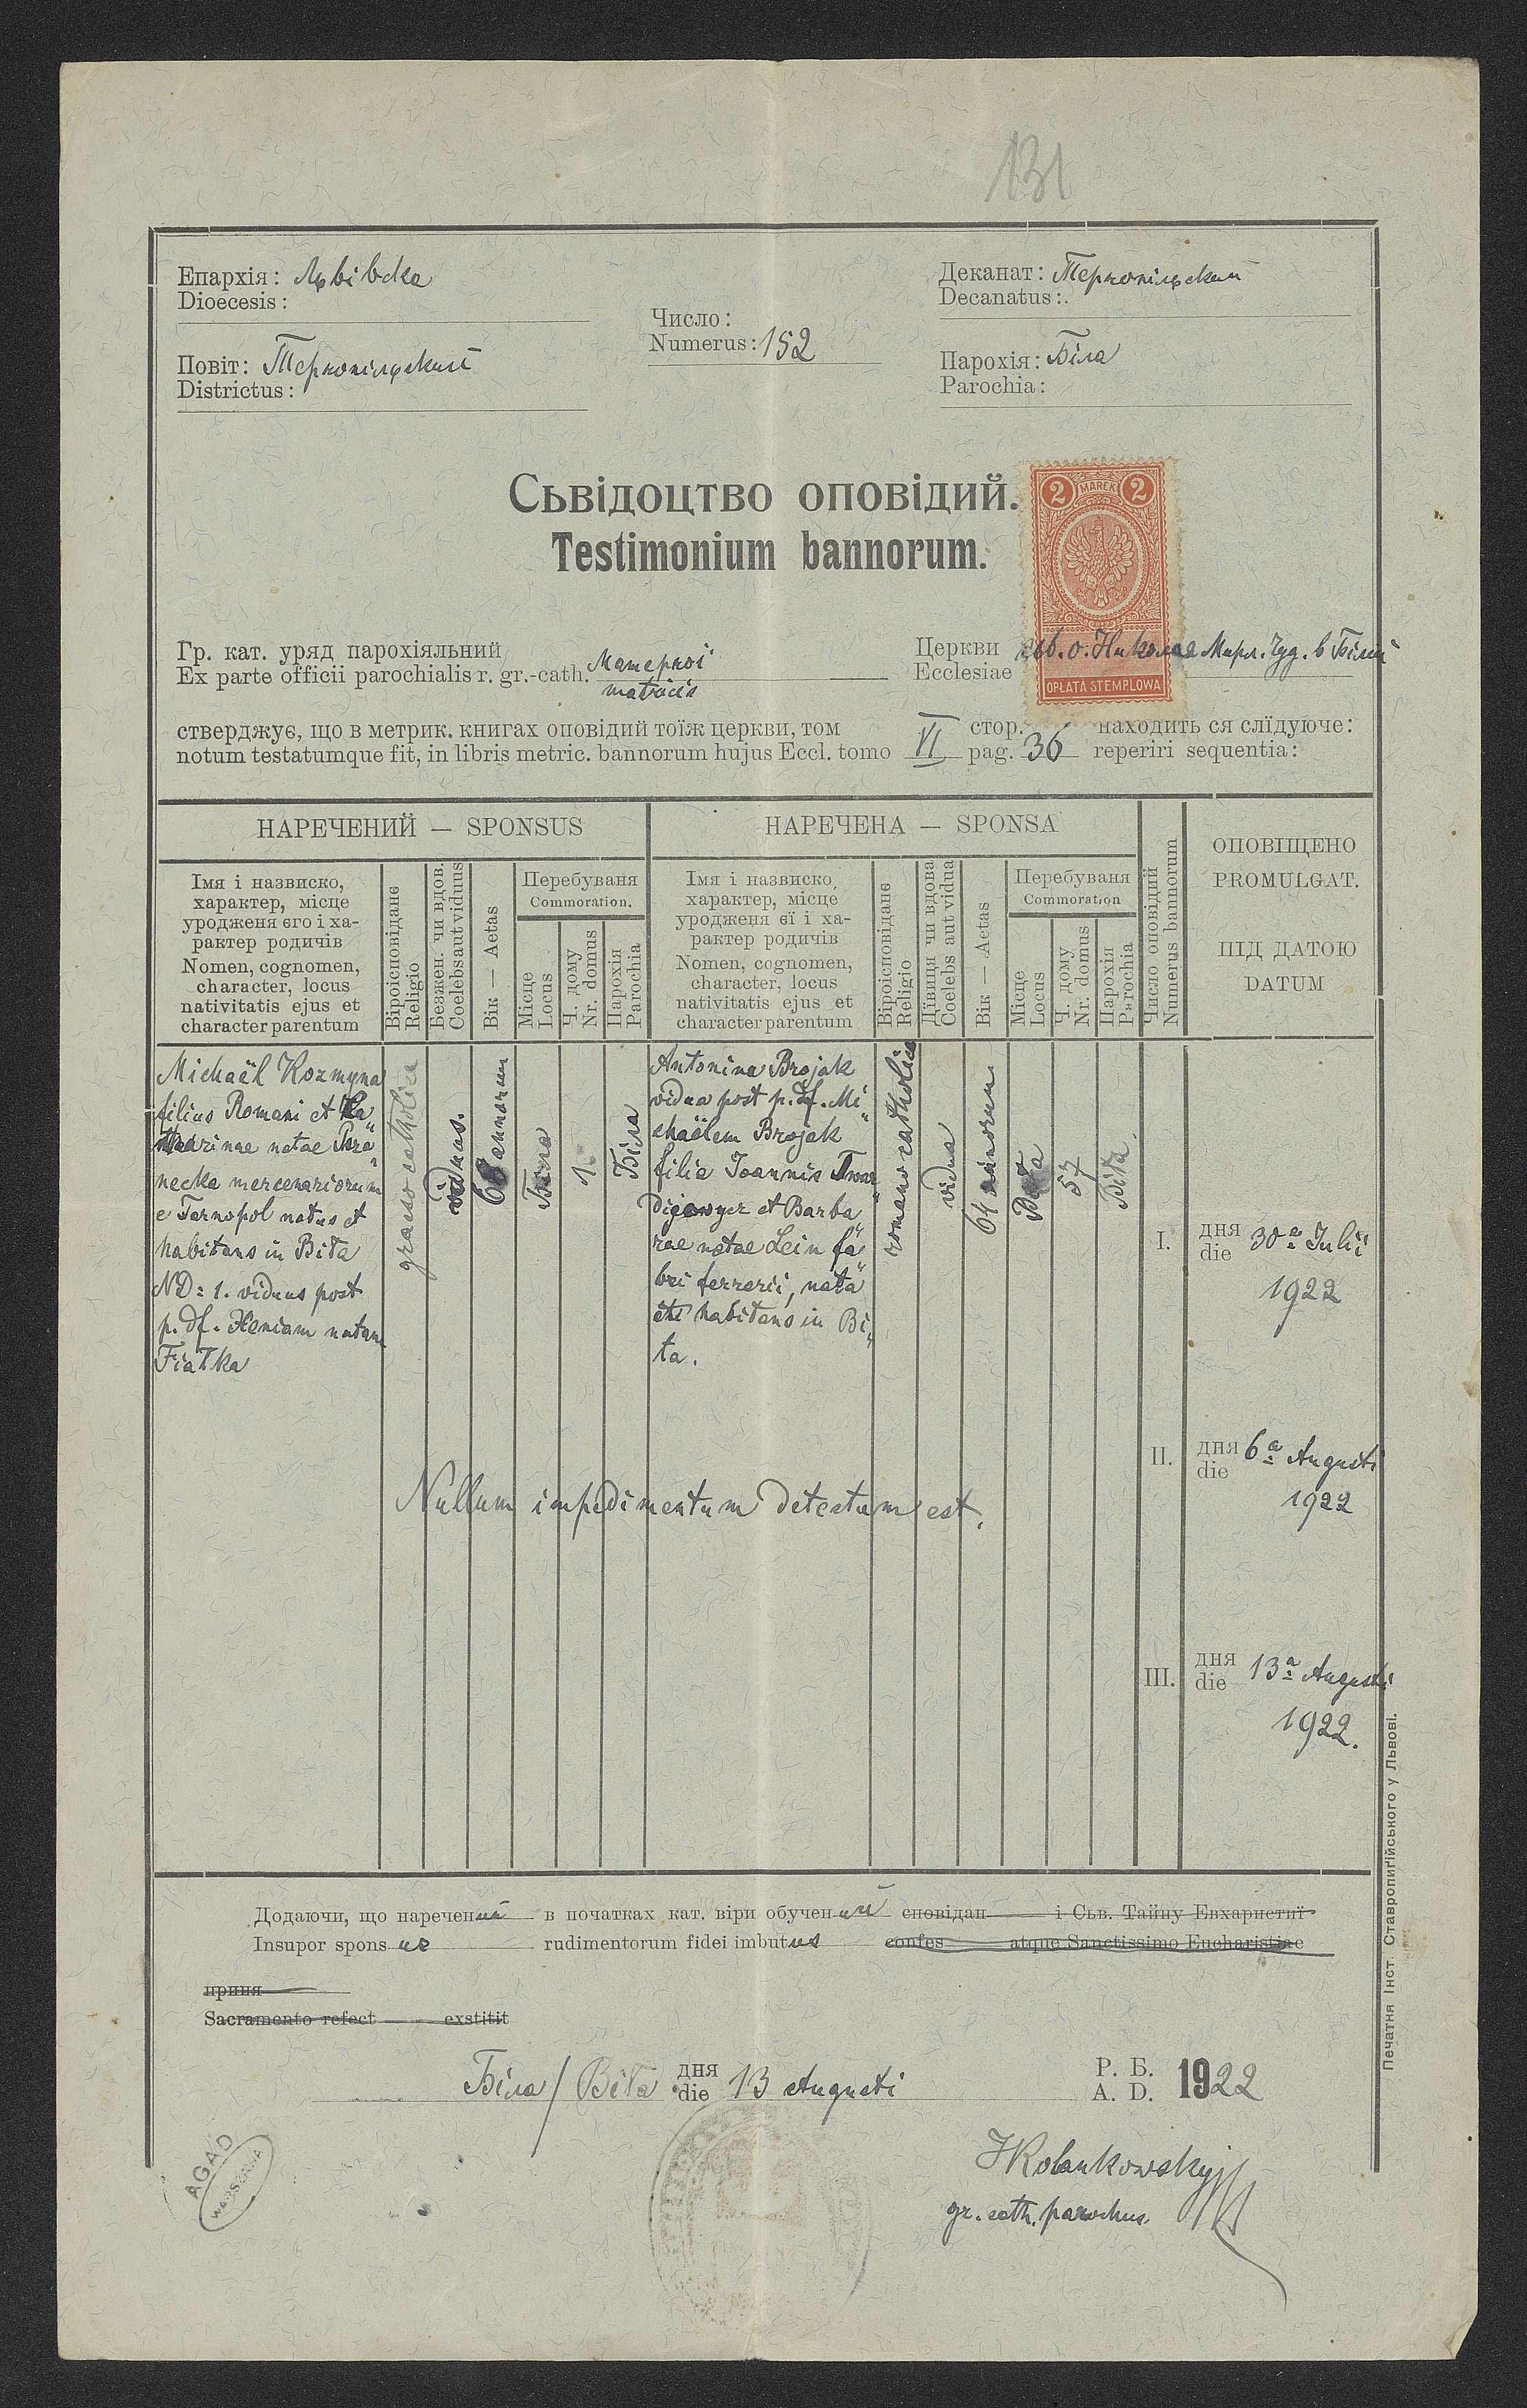 131
Епархія: Львівска
Dioecesis:
Повіт: Тернопільский
Districtus:
Число:
Numerus: 152
Деканат: Тернопільский
Decanatus:
Парохія: Біла
Parochia:
Сьвідоцтво оповідий.
Testimonium bannorum.
2 MAREK 2
OPŁATA STEMPLOWA
Гр. кат. уряд парохіяльний Матерної
Ex parte officii parochialis r. gr.-cath. matricis
Церкви сьв. о. Николая Мирл. Чуд. в Білій
Ecclesiae
стверджує, що в метрик. книгах оповідий тоїж церкви, том VI стор. 36 находить ся слїдуюче:
notum testatumque fit, in libris metric. bannorum hujus Eccl. tomo pag. reperiri sequentia:
НАРЕЧЕНИЙ — SPONSUS
Імя і назвиско,
характер, місце
уродженя єго і ха-
рактер родичів
Nomen, cognomen,
character, locus
nativitatis ejus et
character parentum
Віроісповіданє
Religio
Безжен. чи вдов.
Coelebs aut viduus
Вік — Aetas
Перебуваня
Commoration.
Місце
Locus
Ч. дому
Nr. domus
Парохія
Parochia
НАРЕЧЕНА — SPONSA
Імя і назвиско,
характер, місце
уродженя єї і ха-
рактер родичів
Nomen, cognomen,
character, locus
nativitatis ejus et
character parentum
Віроісповіданє
Religio
Дївиця чи вдова
Coelebs aut vidua
Вік — Aetas
Перебуваня
Commoration
Місце
Locus
Ч. дому
Nr. domus
Парохія
Parochia
Число оповідий
Numerus bannorum
ОПОВІЩЕНО
PROMULGAT.
ПІД ДАТОЮ
DATUM
Michaël Kozmyna
filius Romani et Ka„
tharinae natae
necka mercenariorum
e Tarnopol natus et
habitans in Biła
ND: 1. viduus post
p. df. Xeniam natam
Fiałka
graeco catholica
viduus.
annorum
Біла
1.
Біла
Antonina Brojak
vidua post p. df. Mi„
chaëlem Brojak
filia Joannis
et Barba„
rae natae Lein fa„
bri ferrarii, nata
et habitans in Bi„
ła.
romano catholica
vidua
64 annorum
57
Biła
I. дня
die 30ª Julii
1922
II. дня
die 6ª Augusti
1922
III. дня
die 13ª Augusti
1922.
Nullum impedimentum detectum est.
Додаючи, що наречений в початках кат. віри обучений сповідан і Сьв. Тайну Евхаристиї
Insupor sponsus rudimentorum fidei imbutus confes atque Sanctissimo Eucharistiae
приня
Sacramento refect exstitit
Біла / Biła дня
die 13 Augusti Р. Б.
A. D. 1922
Kolankowskyj
gr. cath. parochus
AGAD
WARSZAWA
Печатня Інст. Ставропигійського у Львові.